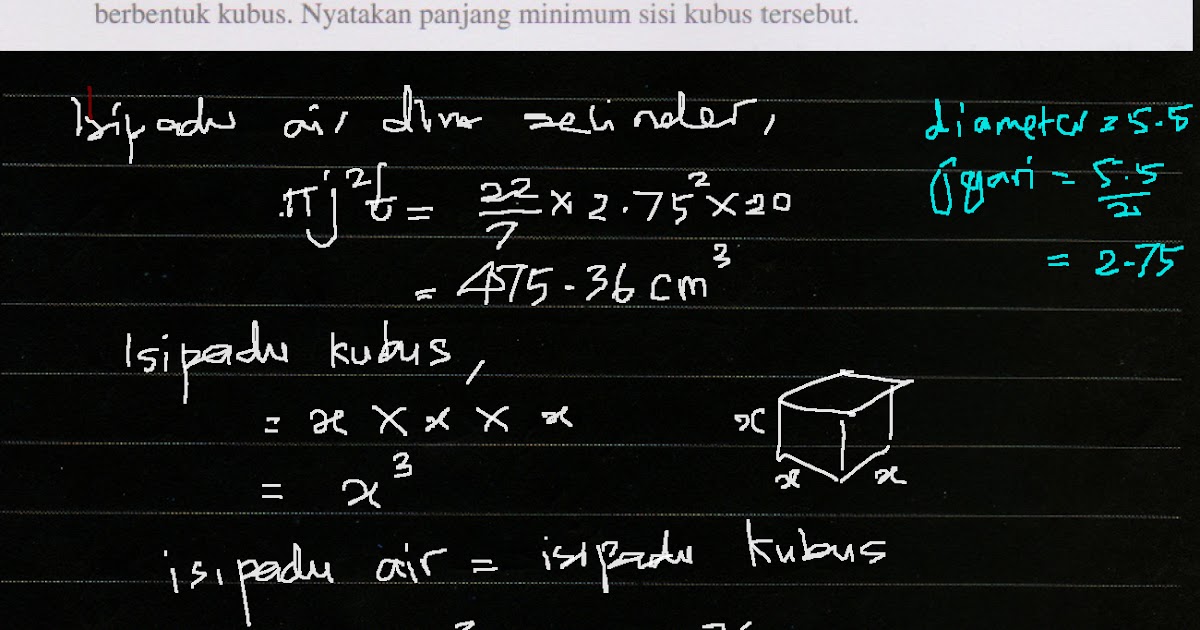 berbentuk kubus. Nyatakan panjang minimum sisi kubus tersebut.
Isipadu air dlm selinder,
πj²t = 22/7 × 2.75² × 20
= 475.36 cm³
diameter = 5.5
jejari = 5.5/2
= 2.75
Isipadu kubus,
= x × x × x
= x³
x
x
x
isipadu air = isipadu kubus